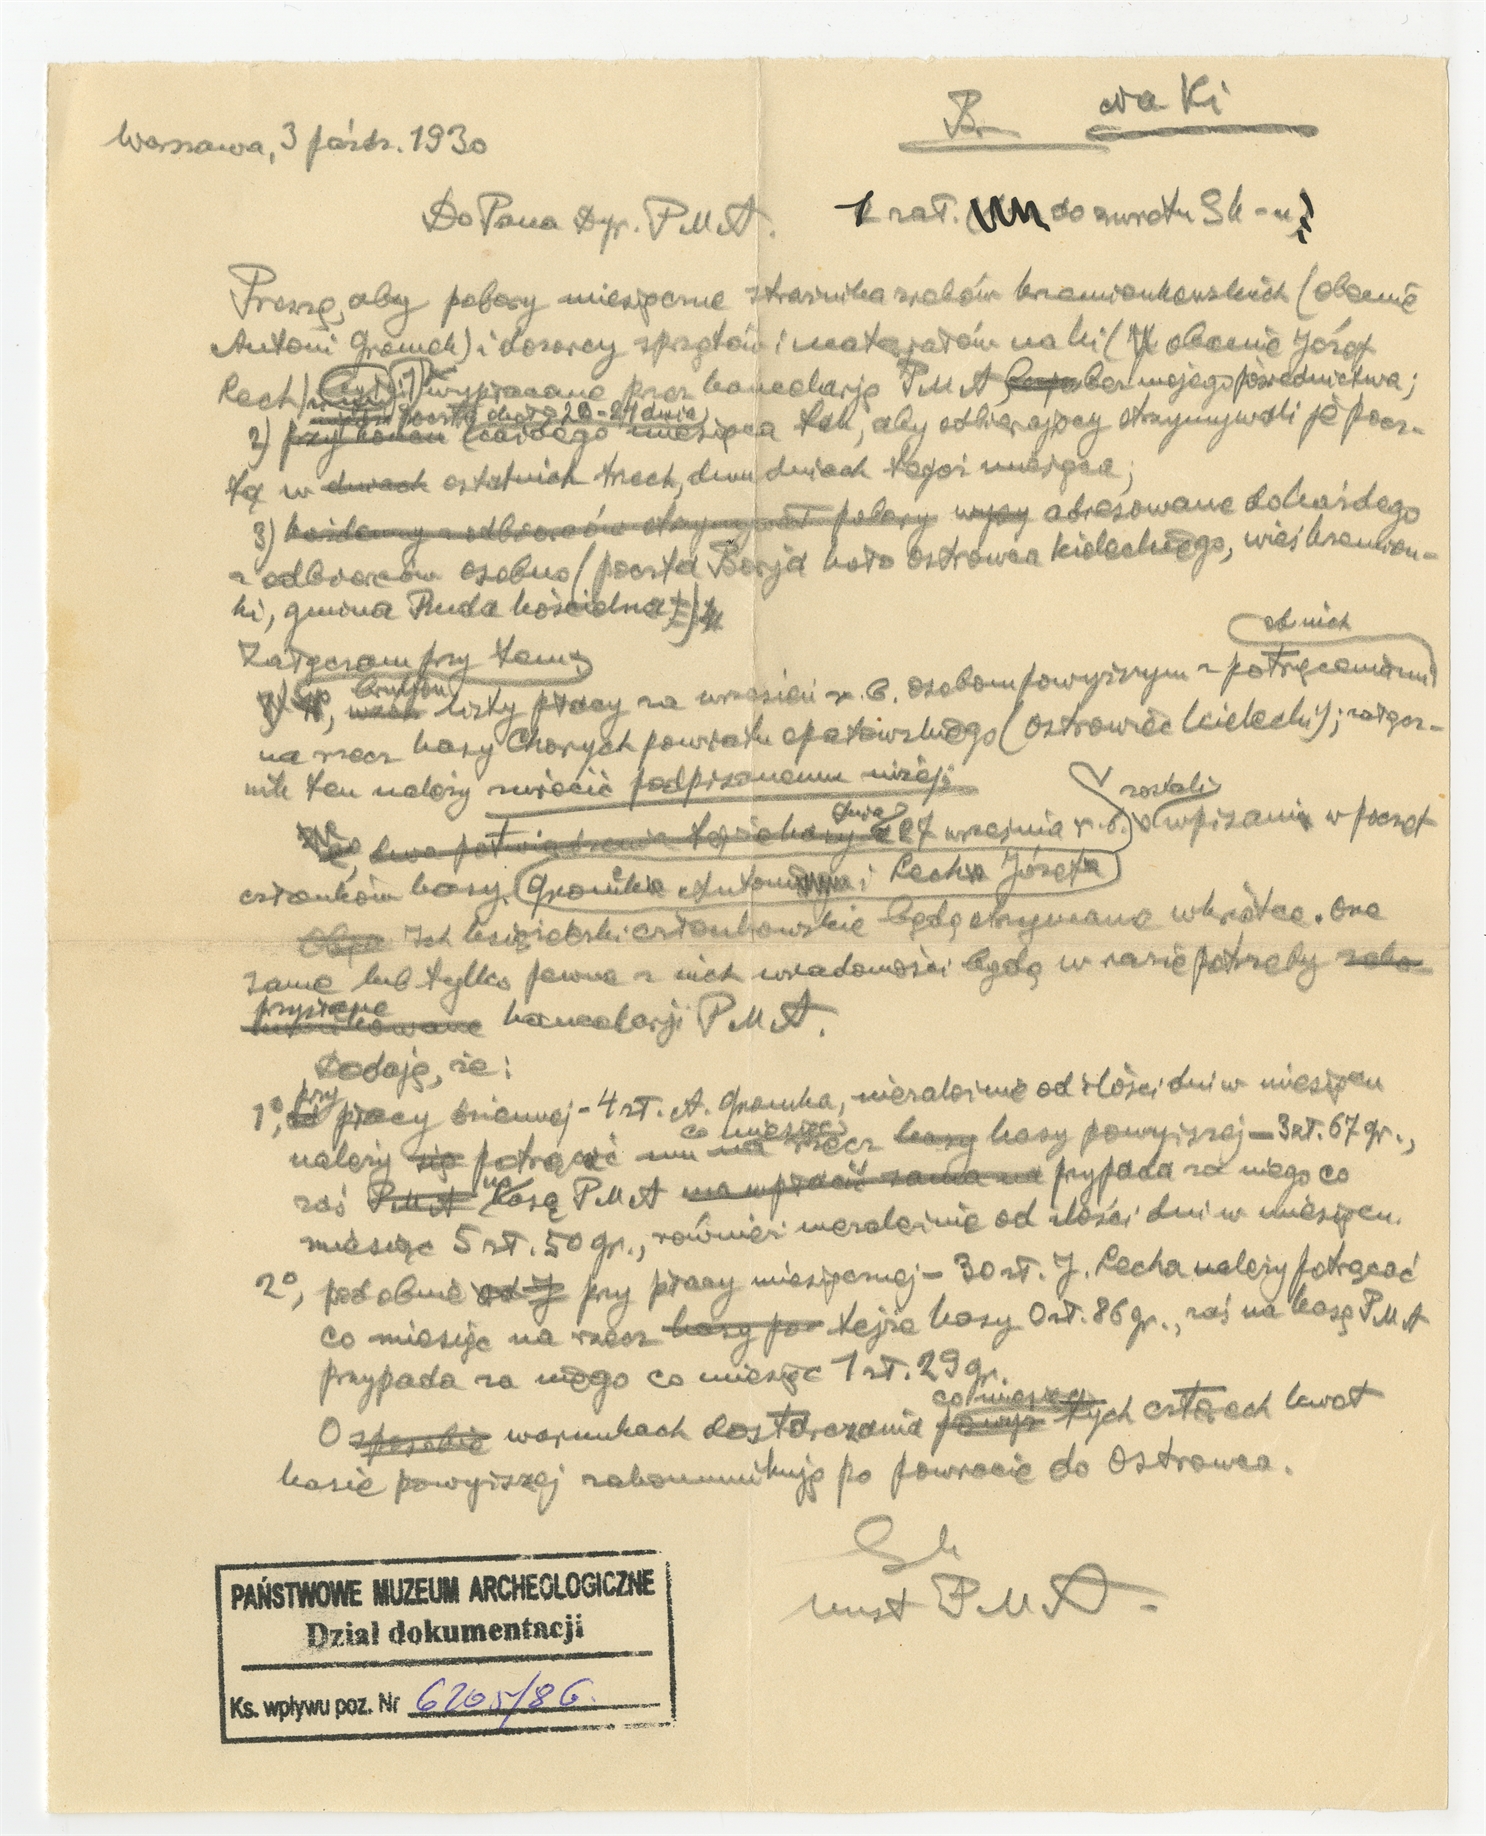 Br. dra Ki
Warszawa, 3 paźdz. 1930
Do Pana Dyr. P M A.
1 zał. do zwrotu Sk-u
Proszę, aby pobory miesięczne strażnika rębów krzemionkowskich (obecnie
Antoni Gromek) i dozorcy sprzętów i materjałów na ki (obecnie Józef
Rech) 1) wypłacane przez kancelarję P M A, bez mojego pośrednictwa;
pocztą około 20-24 dnia
2) przy końcu każdego miesiąca tak, aby odbierający otrzymywali je pocz-
tą w dniach ostatnich trzech, dwu dniach tegoż miesiąca;
3) każdemu z odbiorców otrzymywał pobory adresowane do każdego
z odbiorców osobno (poczta Borja koło Ostrowca kieleckiego, wieś Krzemion-
ki, gmina Ruda kościelna)
od nich
Załączam przy tem:
brutjon
listy płacy za wrzesień r. b. osobom powyższym z potrąceniami
na rzecz kasy Chorych powiatu opatowskiego (Ostrowiec kielecki); załącz-
nik ten należy zwrócić podpisanemu niżej
dnia zostali
dwa potwierdzenia tejże kasy z 27 września r. b. o wpisaniu w poczet
członków kasy, Gromka Antoniego i Recha Józefa
Ich książeczki członkowskie będą otrzymane wkrótce. One
same lub tylko pewne z nich wiadomości będą w razie potrzeby
przysłane
kancelarji P M A.
Dodaję, że:
przy
1°, płacy dziennej - 4 zł. A. Gromka, niezależnie od ilości dni w miesiącu
co miesiąc
należy się potrącać mu na rzecz kasy kasy powyższej - 3 zł. 67 gr.,
na
zaś P M A kasę P M A ma wpłacić sama na przypada za niego co
miesiąc 5 zł. 50 gr., również niezależnie od ilości dni w miesiącu.
2°, podobnie od J przy płacy miesięcznej - 30 zł. J. Recha należy potrącać
co miesiąc na rzecz kasy po tejże kasy 0 zł. 86 gr., zaś na kasę P M A
przypada za niego co miesiąc 1 zł. 29 gr.
co miesiąc
O sposobie warunkach dostarczania powyż tych czterech kwot
kasie powyższej zakomunikuję po powrocie do Ostrowca.
Sk
kust P M A.
PAŃSTWOWE MUZEUM ARCHEOLOGICZNE
Dział dokumentacji
Ks. wpływu poz. Nr 6205/86.